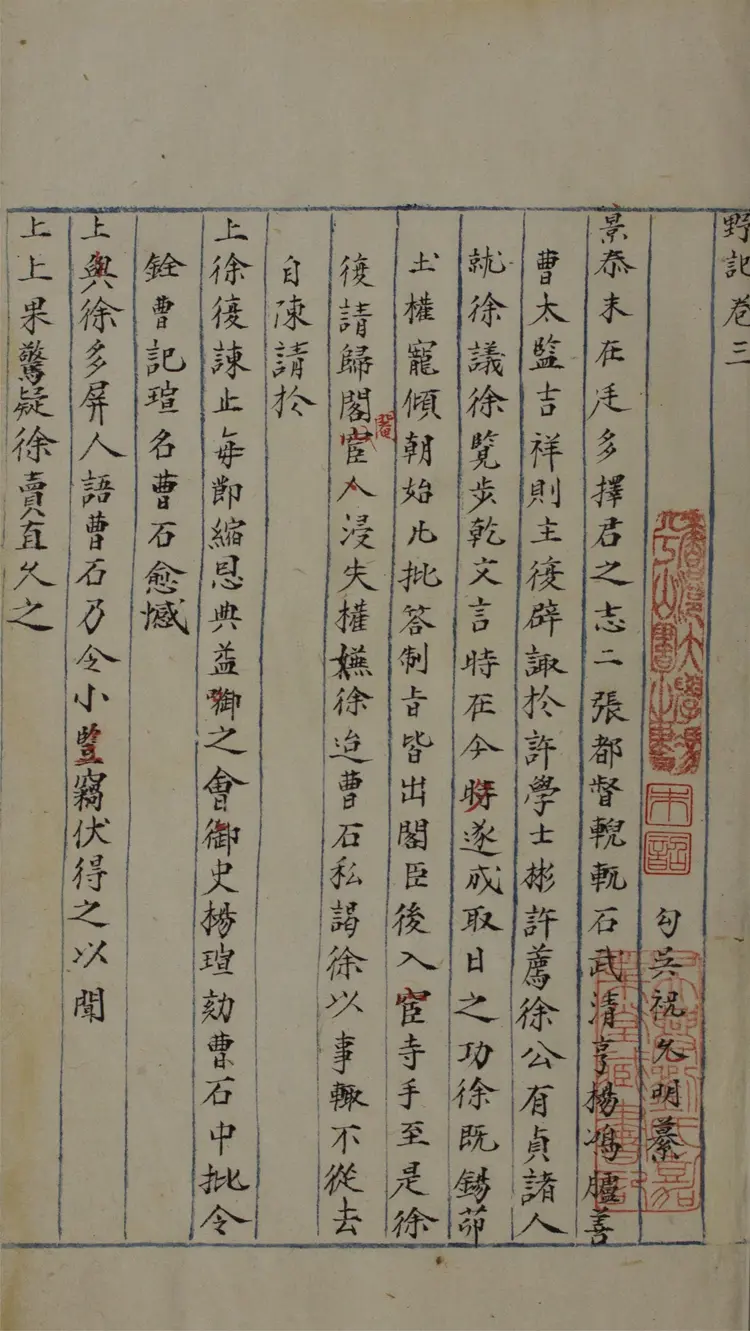 野記卷三
勾吳祝允明纂
景泰末在廷多擇君之志二張都督輗軏石武清亨楊鴻臚善
曹太監吉祥則主復辟諏於許學士彬許薦徐公有貞諸人
就徐議徐覽步乾文言時在今時遂成取日之功徐既錫茆
土權寵傾朝始凡批答制旨皆出閣臣後入宦寺手至是徐
復請歸閣宦人浸失權嫵徐迨曹石私謁徐以事輙不從去
閹
自陳請於
上徐復諫止每節縮恩典益啣之會御史楊瑄劾曹石中批令
銓曹記瑄名曹石愈憾
上與徐多屏人語曹石乃令小豎竊伏得之以聞
上上果驚疑徐賣直久之